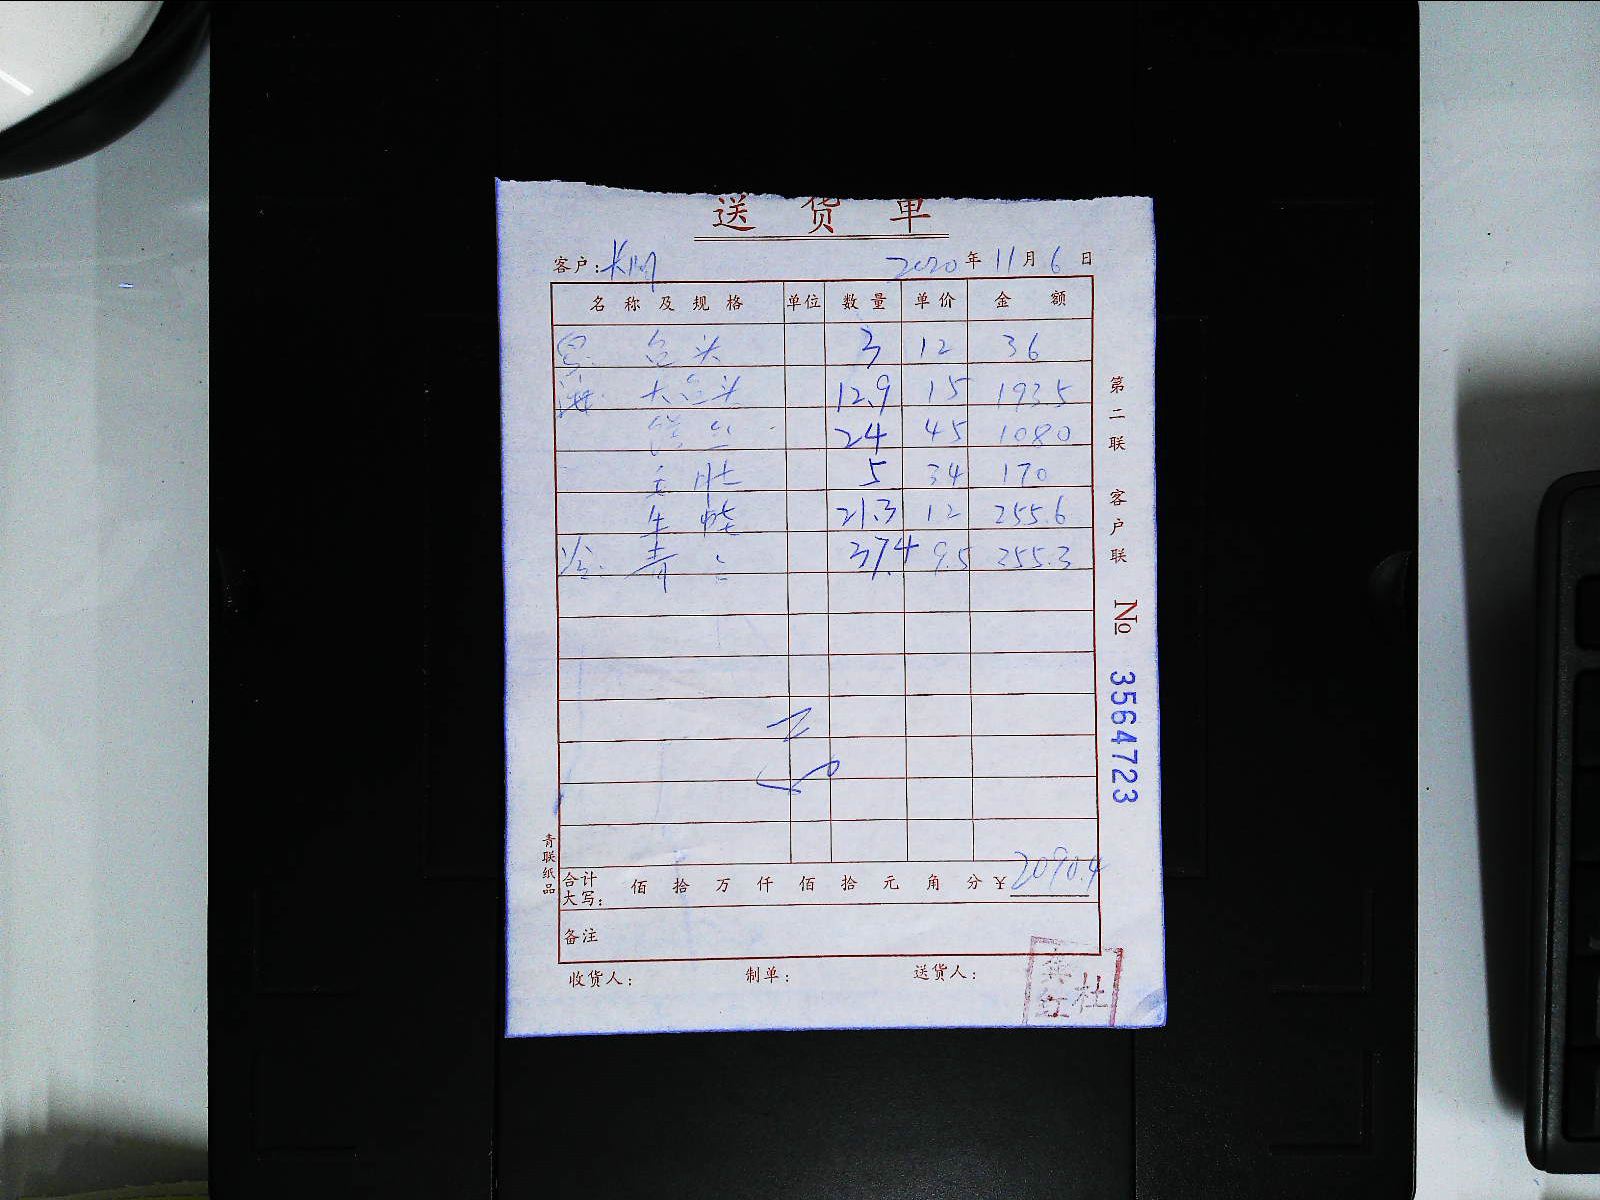 送货单
客户: 2020年11月6日
名称及规格 单位 数量 单价 金额
包头 3 12 36
海. 大包头 12.9 15 193.5
24 45 1080
毛肚 5 34 170
牛 21.3 12 255.6
青 37.4 9.5 255.3
合计大写: 佰 拾 万 仟 佰 拾 元 角 分 ¥ 2090.4
备注
收货人: 制单: 送货人:
第二联 客户联 № 3564723
青联纸品
杜 红